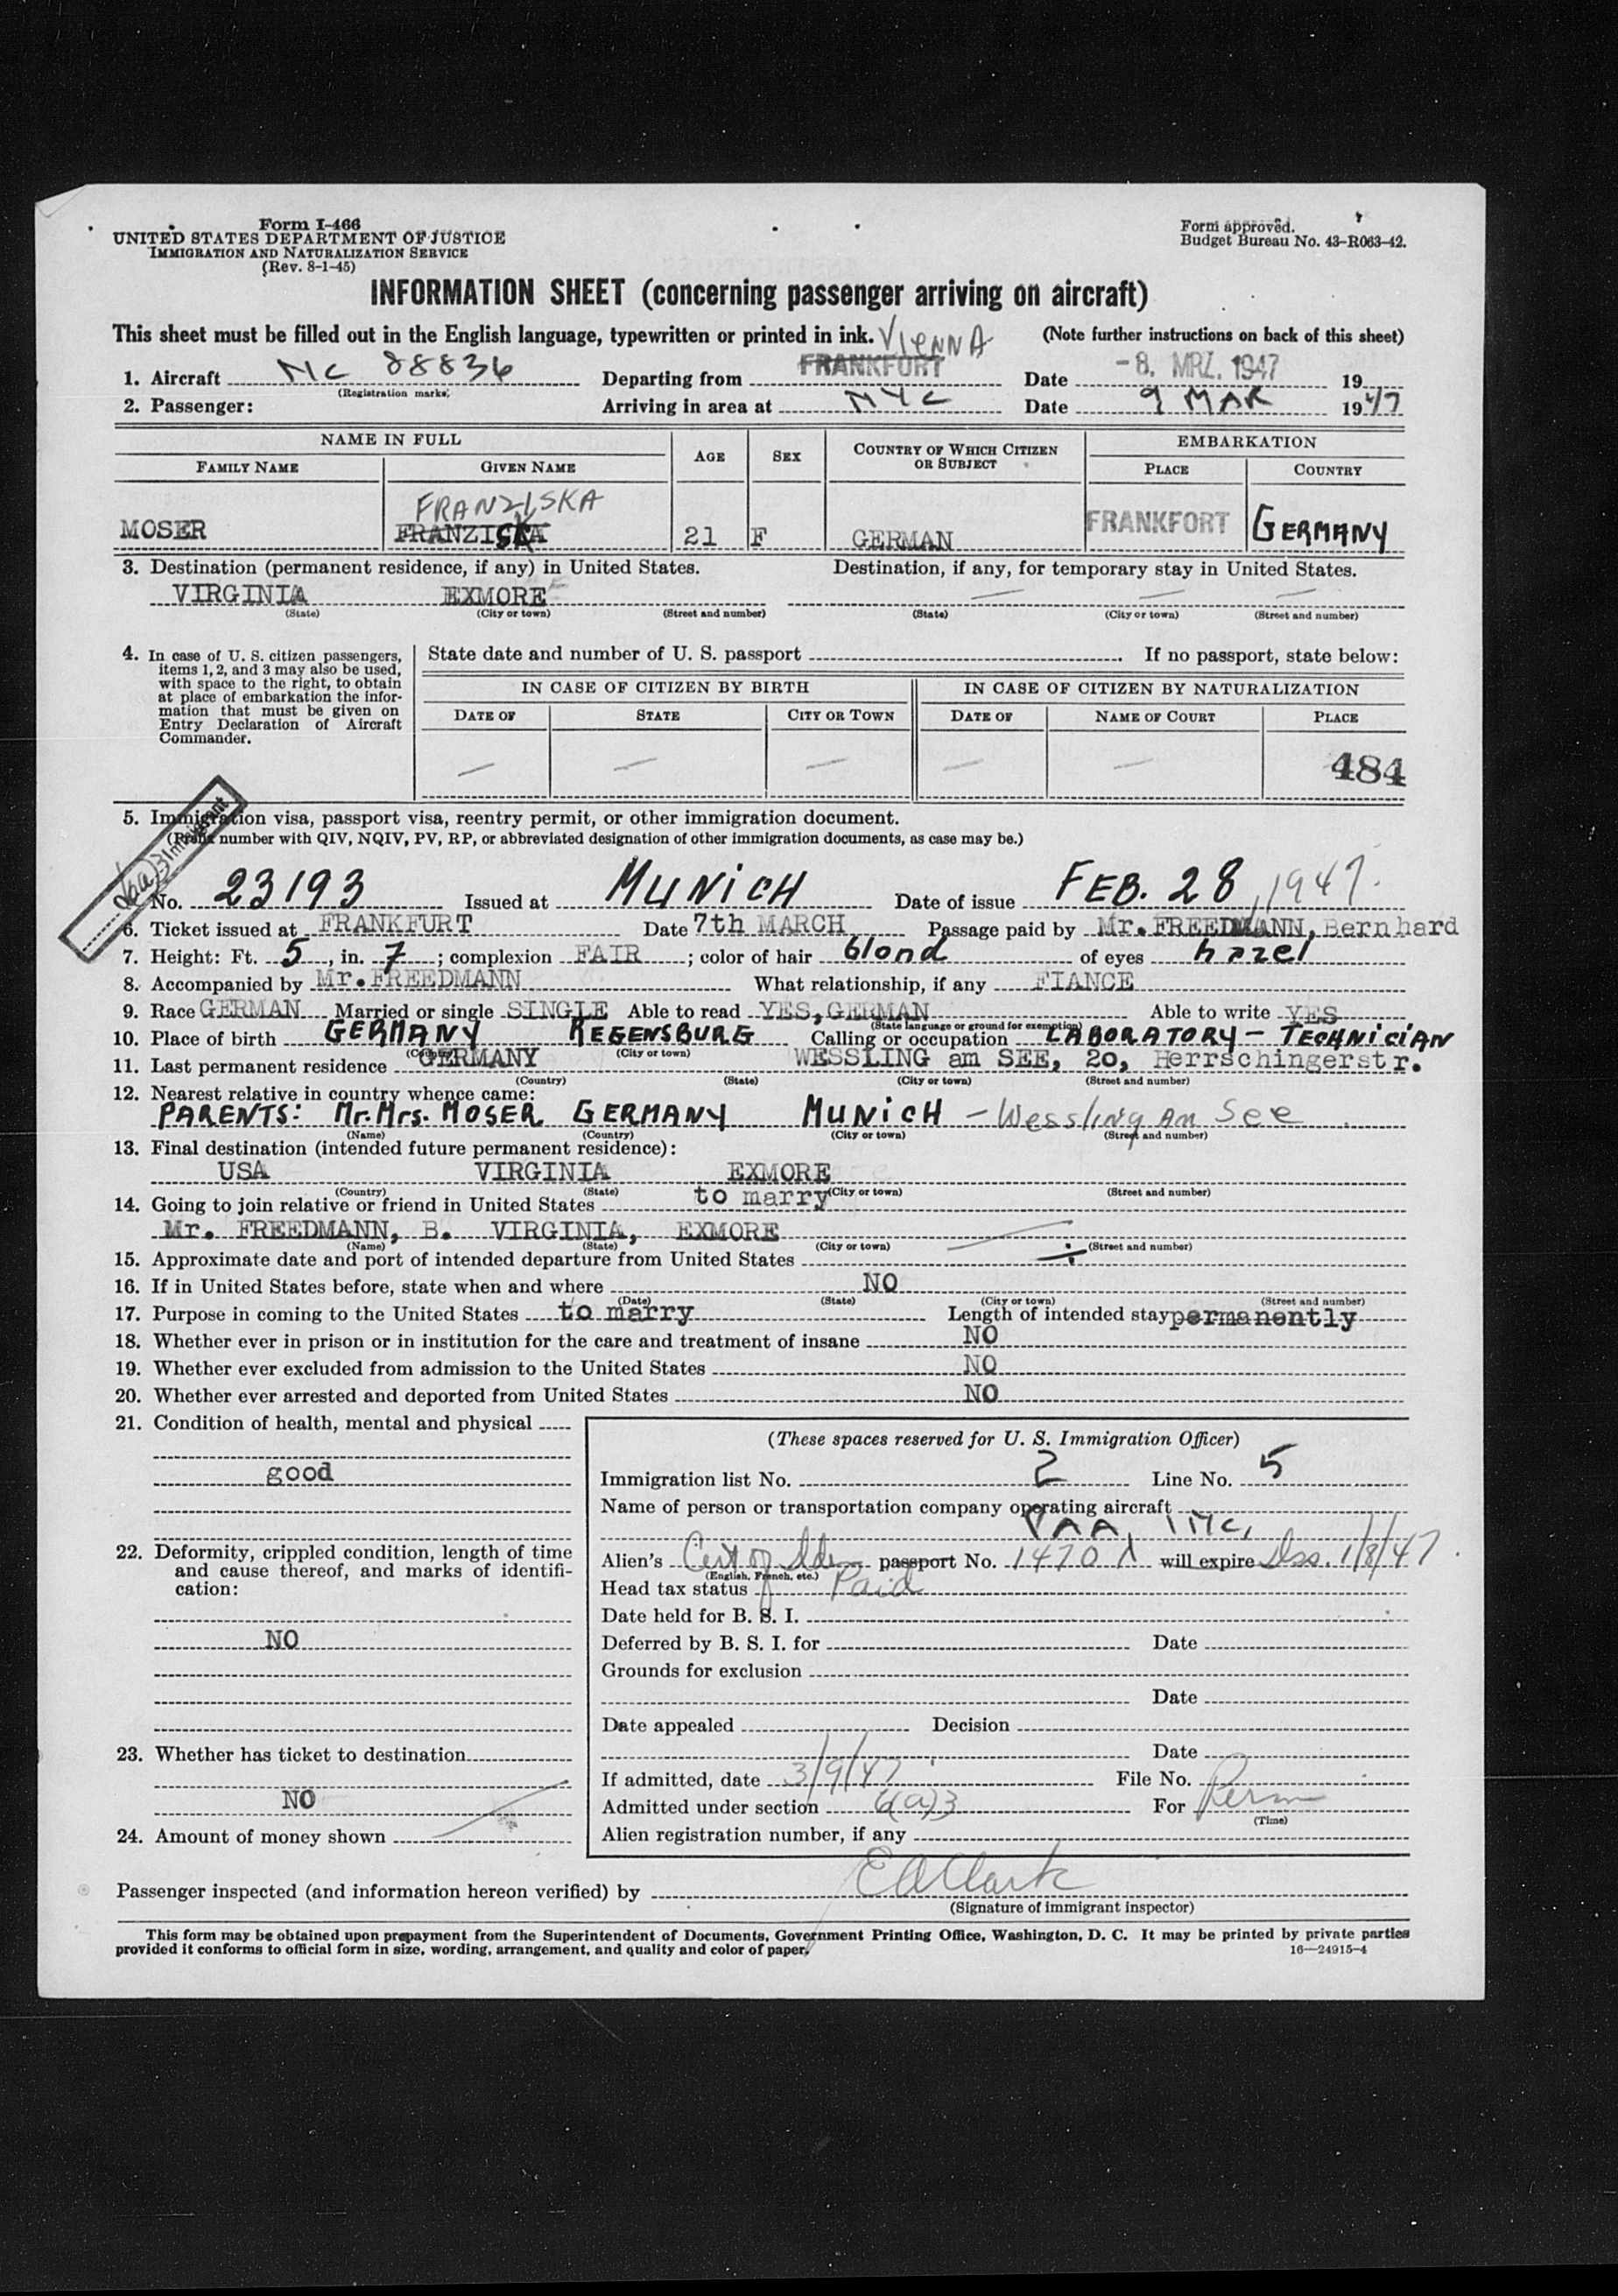 Form I-466
UNITED STATES DEPARTMENT OF JUSTICE
IMMIGRATION AND NATURALIZATION SERVICE
(Rev. 8-1-45)
Form approved.
Budget Bureau No. 43-R063-42.
INFORMATION SHEET (concerning passenger arriving on aircraft)
This sheet must be filled out in the English language, typewritten or printed in ink. (Note further instructions on back of this sheet)
VIENNA
1. Aircraft NC 88836 Departing from FRANKFORT Date -8. MRZ. 1947 19
(Registration marks)
2. Passenger: Arriving in area at NYC Date 9 MAR 1947
NAME IN FULL AGE SEX COUNTRY OF WHICH CITIZEN OR SUBJECT EMBARKATION
FAMILY NAME GIVEN NAME PLACE COUNTRY
FRANZISKA
MOSER FRANZISKA 21 F GERMAN FRANKFORT GERMANY
3. Destination (permanent residence, if any) in United States. Destination, if any, for temporary stay in United States.
VIRGINIA EXMORE
(State) (City or town) (Street and number) (State) (City or town) (Street and number)
4. In case of U. S. citizen passengers, items 1, 2, and 3 may also be used, with space to the right, to obtain at place of embarkation the information that must be given on Entry Declaration of Aircraft Commander.
State date and number of U. S. passport If no passport, state below:
IN CASE OF CITIZEN BY BIRTH IN CASE OF CITIZEN BY NATURALIZATION
DATE OF STATE CITY OR TOWN DATE OF NAME OF COURT PLACE
484
5. Immigration visa, passport visa, reentry permit, or other immigration document.
(Prefix number with QIV, NQIV, PV, RP, or abbreviated designation of other immigration documents, as case may be.)
6(a)3 Immigrant
No. 23193 Issued at MUNICH Date of issue FEB. 28, 1947.
6. Ticket issued at FRANKFURT Date 7th MARCH Passage paid by Mr. FREEDMANN, Bernhard
7. Height: Ft. 5, in. 7; complexion FAIR; color of hair blond of eyes hazel
8. Accompanied by Mr. FREEDMANN What relationship, if any FIANCE
9. Race GERMAN Married or single SINGLE Able to read YES, GERMAN Able to write YES
(State language or ground for exemption)
10. Place of birth GERMANY REGENSBURG Calling or occupation LABORATORY-TECHNICIAN
(Country) (City or town)
11. Last permanent residence GERMANY WESSLING am SEE, 20, Herrschingerstr.
(Country) (State) (City or town) (Street and number)
12. Nearest relative in country whence came:
PARENTS: Mr. Mrs. MOSER GERMANY MUNICH - Wessling Am See
(Name) (Country) (City or town) (Street and number)
13. Final destination (intended future permanent residence):
USA VIRGINIA EXMORE
(Country) (State) (City or town) (Street and number)
14. Going to join relative or friend in United States to marry
Mr. FREEDMANN, B. VIRGINIA, EXMORE
(Name) (State) (City or town) (Street and number)
15. Approximate date and port of intended departure from United States
16. If in United States before, state when and where NO
(Date) (State) (City or town) (Street and number)
17. Purpose in coming to the United States to marry Length of intended stay permanently
18. Whether ever in prison or in institution for the care and treatment of insane NO
19. Whether ever excluded from admission to the United States NO
20. Whether ever arrested and deported from United States NO
21. Condition of health, mental and physical
good
22. Deformity, crippled condition, length of time and cause thereof, and marks of identification:
NO
23. Whether has ticket to destination
NO
24. Amount of money shown
(These spaces reserved for U. S. Immigration Officer)
Immigration list No. 2 Line No. 5
Name of person or transportation company operating aircraft
PAA, INC,
Alien's Cert of Iden passport No. 1470 will expire Iss. 1/8/47.
(English, French, etc.)
Head tax status Paid
Date held for B. S. I.
Deferred by B. S. I. for Date
Grounds for exclusion
Date
Date appealed Decision
Date
If admitted, date 3/9/47 File No.
Admitted under section 6(a)3 For Perm
(Time)
Alien registration number, if any
Passenger inspected (and information hereon verified) by E A Clark
(Signature of immigrant inspector)
This form may be obtained upon prepayment from the Superintendent of Documents, Government Printing Office, Washington, D. C. It may be printed by private parties
provided it conforms to official form in size, wording, arrangement, and quality and color of paper.
16—24915-4